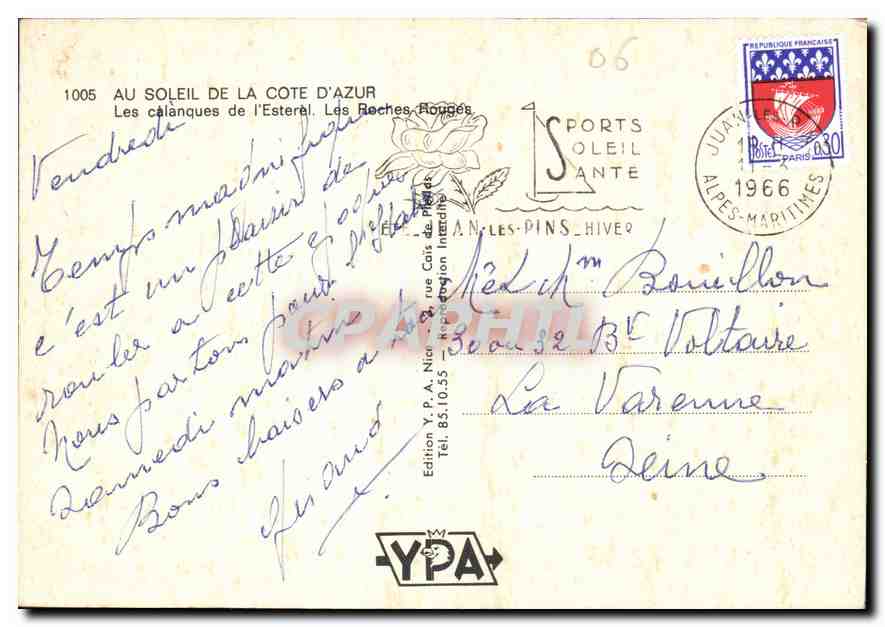 06
1005 AU SOLEIL DE LA COTE D'AZUR
Les calanques de l'Esterel. Les Roches Rouges
Vendredi
Temps magnifique
c'est un plaisir de
rouler a cette époque
Nous partons pour l'Italie
Samedi matin
Bons baisers a
SPORTS
SOLEIL
SANTE
JUAN-LES-PINS_HIVER
REPUBLIQUE FRANÇAISE
POSTES
0,30
PARIS
JUAN-LES-P
1966
ALPES-MARITIMES
Mr et Mm Bouillon
30 ou 32 Bd Voltaire
La Varenne
Seine
Edition Y. P. A. Nice rue Cais de Pierlas
Tél. 85.10.55 — Reproduction Interdite
CPAPHIL
YPA